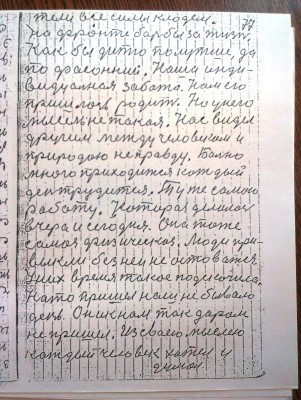 тели все силы кладём. 79
на фронте борьбы за жизнь.
Как бы дитю получше, да
по фасонный. Наша инди-
видуальная забота. Нам его
пришлось родить. Но у него
мысль не такая. Нас видел
другим между человеком и
природою неправду. Больно
много приходится каждый
день трудится. Ту же самою
работу. Которая делалась
вчера и сегодня. Она тоже
самая физическая. Люди при-
выкли без неё не остоватся.
У них время такое подскочила.
На то пришёл наш небывало
день. Он и к нам так даром
не пришёл. Из своею мыслею
каждый человек хотел и